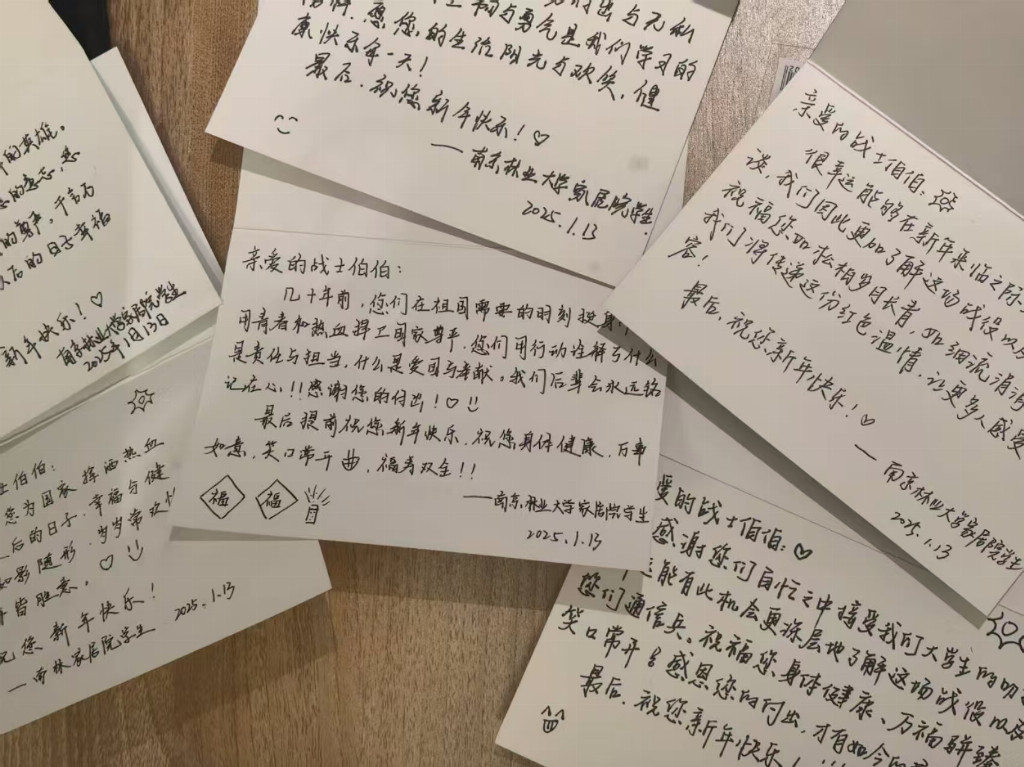 与勇气是我们学习的
愿您的生活阳光与欢笑,健
康快乐每一天!
最后,祝您新年快乐!♡
——南京林业大学家居院学生
2025.1.13
的英雄。
的尊严,千言万
以后的日子幸福
新年快乐!♡
南京林业大学家居院学生
2025年1月13日
亲爱的战士伯伯:
几十年前,您们在祖国需要的时刻挺身
用青春和热血捍卫国家尊严,您们用行动诠释了什么
是责任与担当,什么是爱国与奉献。我们后辈会永远铭
记在心!!感谢您的付出!♡
最后提前祝您新年快乐,祝您身体健康,万事
如意,笑口常开,福寿双全!!
福 福
——南京林业大学家居院学生
2025.1.13
亲爱的战士伯伯:
很幸运能够在新年来临之际
谈,我们因此更加了解这场战役以及
祝福您如松柏岁月长青,如细流涓涓
容!我们将传递这份红色温情,让更多人感受
最后,祝您新年快乐!♡
——南京林业大学家居院学生
2025.1.13
士伯伯:
您为国家挥洒热血
后的日子,幸福与健
如影随形,岁岁常欢愉
皆胜意。♡
祝您新年快乐!
——南林家居院学生 2025.1.13
爱的战士伯伯:♥
感谢您们百忙之中接受我们大学生的
能有此机会更深层地了解这场战役以及
您们通信兵。祝福您身体健康、万福骈臻
笑口常开!感恩您的付出,才有如今的
最后,祝您新年快乐!!!